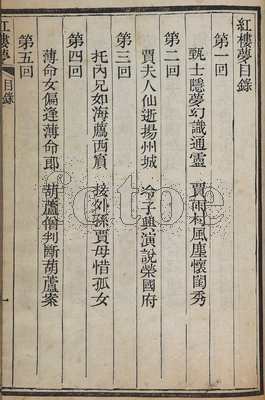 紅樓夢目錄
第一回
甄士隱夢幻識通靈 賈雨村風塵懷閨秀
第二回
賈夫人仙逝揚州城 冷子興演說榮國府
第三回
托內兄如海薦西賓 接外孫賈母惜孤女
第四回
薄命女偏逢薄命郎 葫蘆僧判斷葫蘆案
第五回
紅樓夢 目錄 一
fotoe